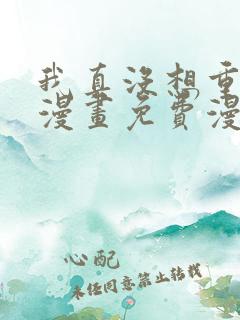 我真没想重
漫畫免費漫
心配
未经同意禁止转载